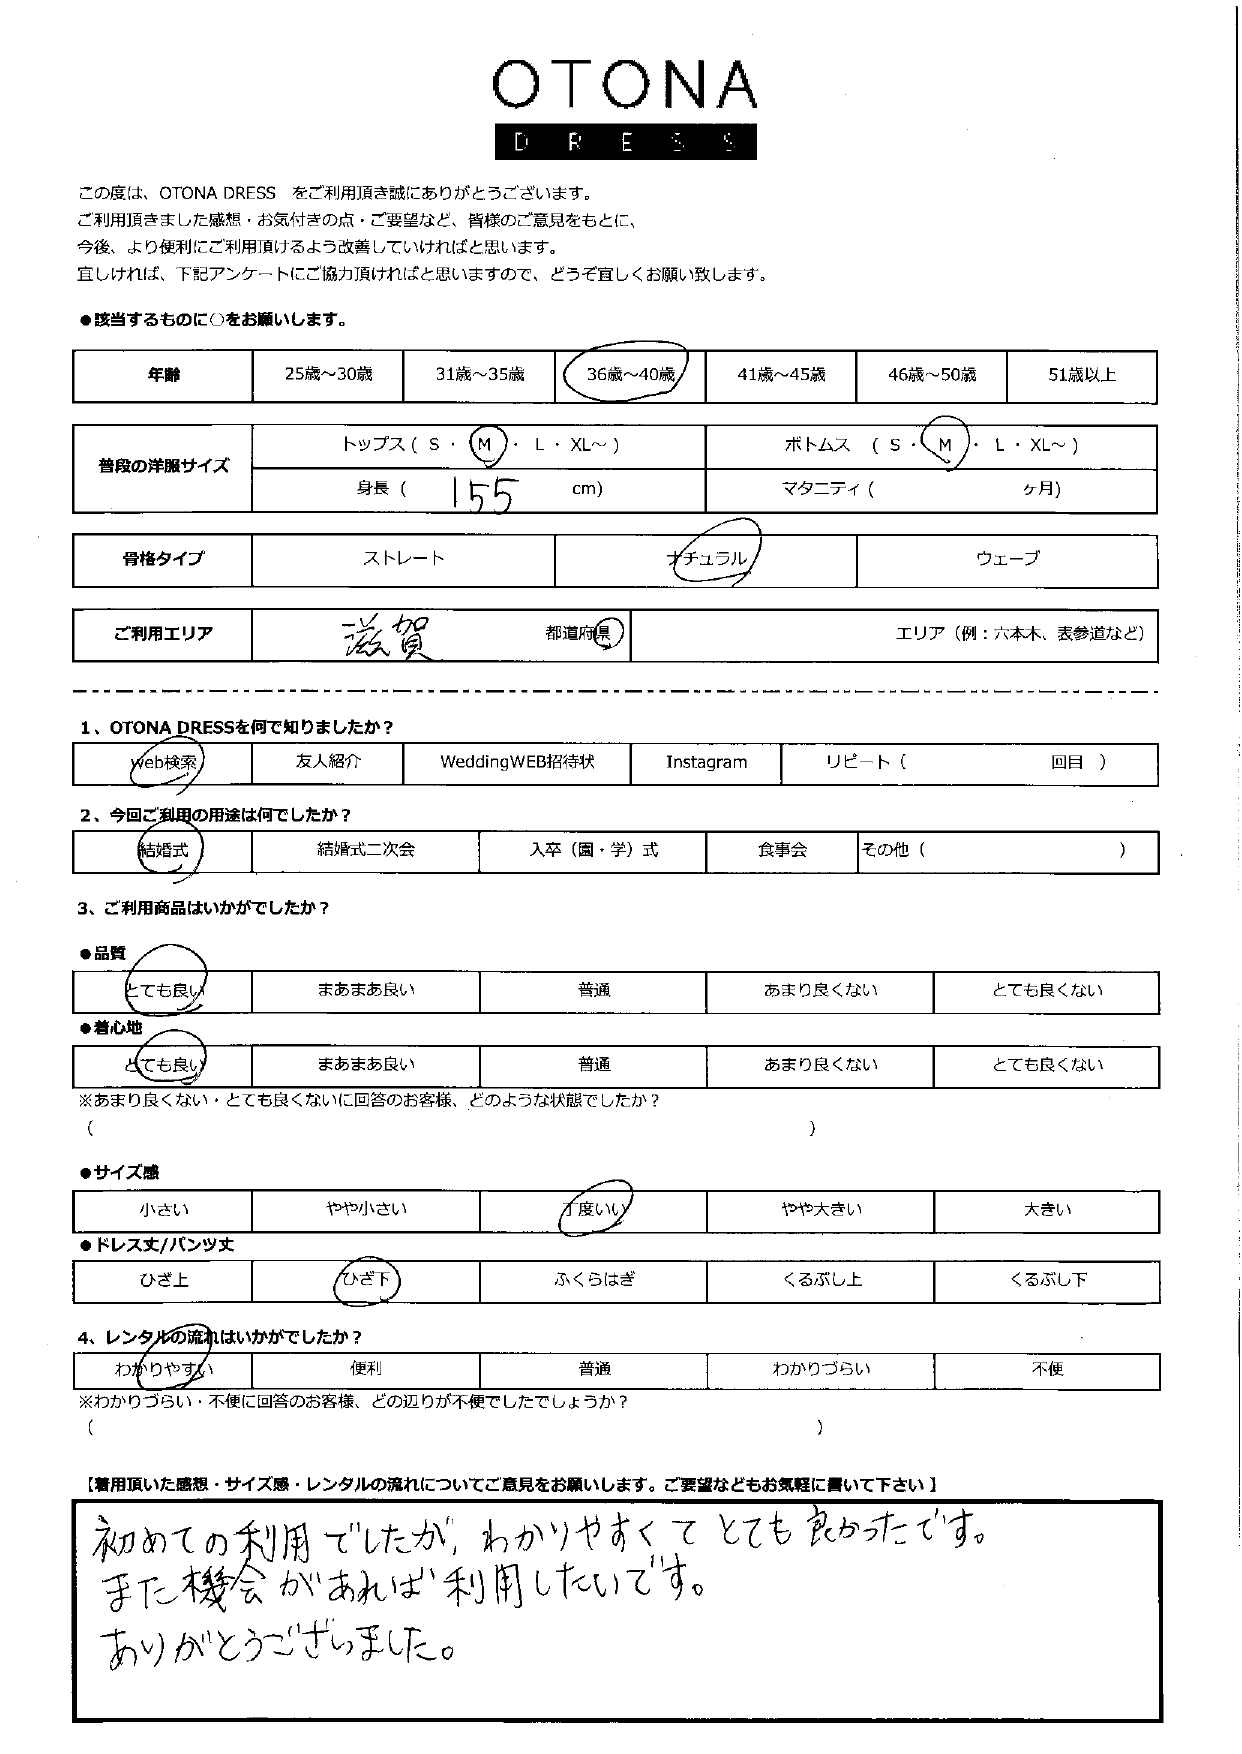 OTONA
DRESS
この度は、OTONA DRESS　をご利用頂き誠にありがとうございます。
ご利用頂きました感想・お気付きの点・ご要望など、皆様のご意見をもとに、
今後、より便利にご利用頂けるよう改善していければと思います。
宜しければ、下記アンケートにご協力頂ければと思いますので、どうぞ宜しくお願い致します。
●該当するものに○をお願いします。
年齢 25歳～30歳 31歳～35歳 36歳～40歳 41歳～45歳 46歳～50歳 51歳以上
普段の洋服サイズ トップス ( S ・ M ・ L ・ XL～ ) ボトムス ( S ・ M ・ L ・ XL～ )
身長 ( 155 cm) マタニティ ( ヶ月)
骨格タイプ ストレート ナチュラル ウェーブ
ご利用エリア 滋賀 都道府県 エリア（例：六本木、表参道など）
1、OTONA DRESSを何で知りましたか？
Web検索 友人紹介 WeddingWEB招待状 Instagram リピート（ 回目 ）
2、今回ご利用の用途は何でしたか？
結婚式 結婚式二次会 入卒（園・学）式 食事会 その他（ ）
3、ご利用商品はいかがでしたか？
●品質
とても良い まあまあ良い 普通 あまり良くない とても良くない
●着心地
とても良い まあまあ良い 普通 あまり良くない とても良くない
※あまり良くない・とても良くないに回答のお客様、どのような状態でしたか？
( )
●サイズ感
小さい やや小さい 丁度いい やや大きい 大きい
●ドレス丈/パンツ丈
ひざ上 ひざ下 ふくらはぎ くるぶし上 くるぶし下
4、レンタルの流れはいかがでしたか？
わかりやすい 便利 普通 わかりづらい 不便
※わかりづらい・不便に回答のお客様、どの辺りが不便でしたでしょうか？
( )
【着用頂いた感想・サイズ感・レンタルの流れについてご意見をお願いします。ご要望などもお気軽に書いて下さい】
初めての利用でしたが、わかりやすくてとても良かったです。
また機会があれば利用したいです。
ありがとうございました。